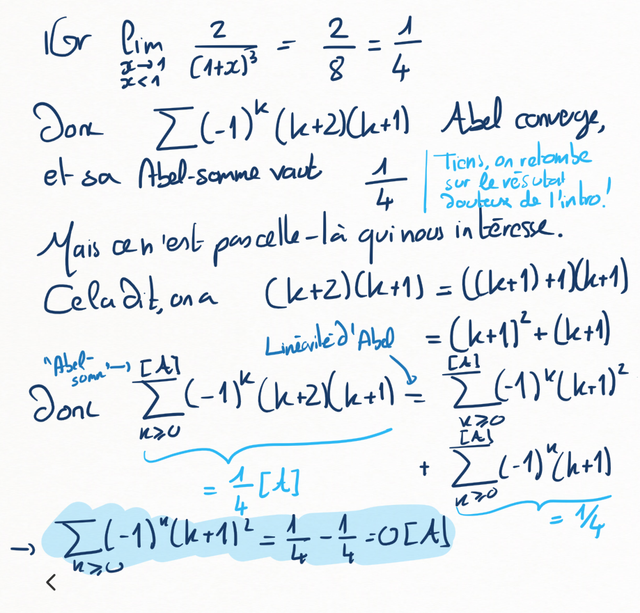 Or lim x→1 x<1 2/(1+x)³ = 2/8 = 1/4
Donc ∑(-1)^k (k+2)(k+1) Abel converge,
et sa Abel-somme vaut 1/4
Tiens, on retombe
sur le résultat
douteux de l'intro!
Mais ce n'est pas celle-là qui nous intéresse.
Cela dit, on a (k+2)(k+1) = ((k+1)+1)(k+1)
= (k+1)² + (k+1)
"Abel-somme" → [A]
Linéarité d'Abel
Donc ∑[A] k≥0 (-1)^k (k+2)(k+1) = ∑[A] k≥0 (-1)^k (k+1)²
+ ∑[A] k≥0 (-1)^k (k+1)
= 1/4 [A]
= 1/4
→ ∑ k≥0 (-1)^k (k+1)² = 1/4 - 1/4 = 0 [A]
<